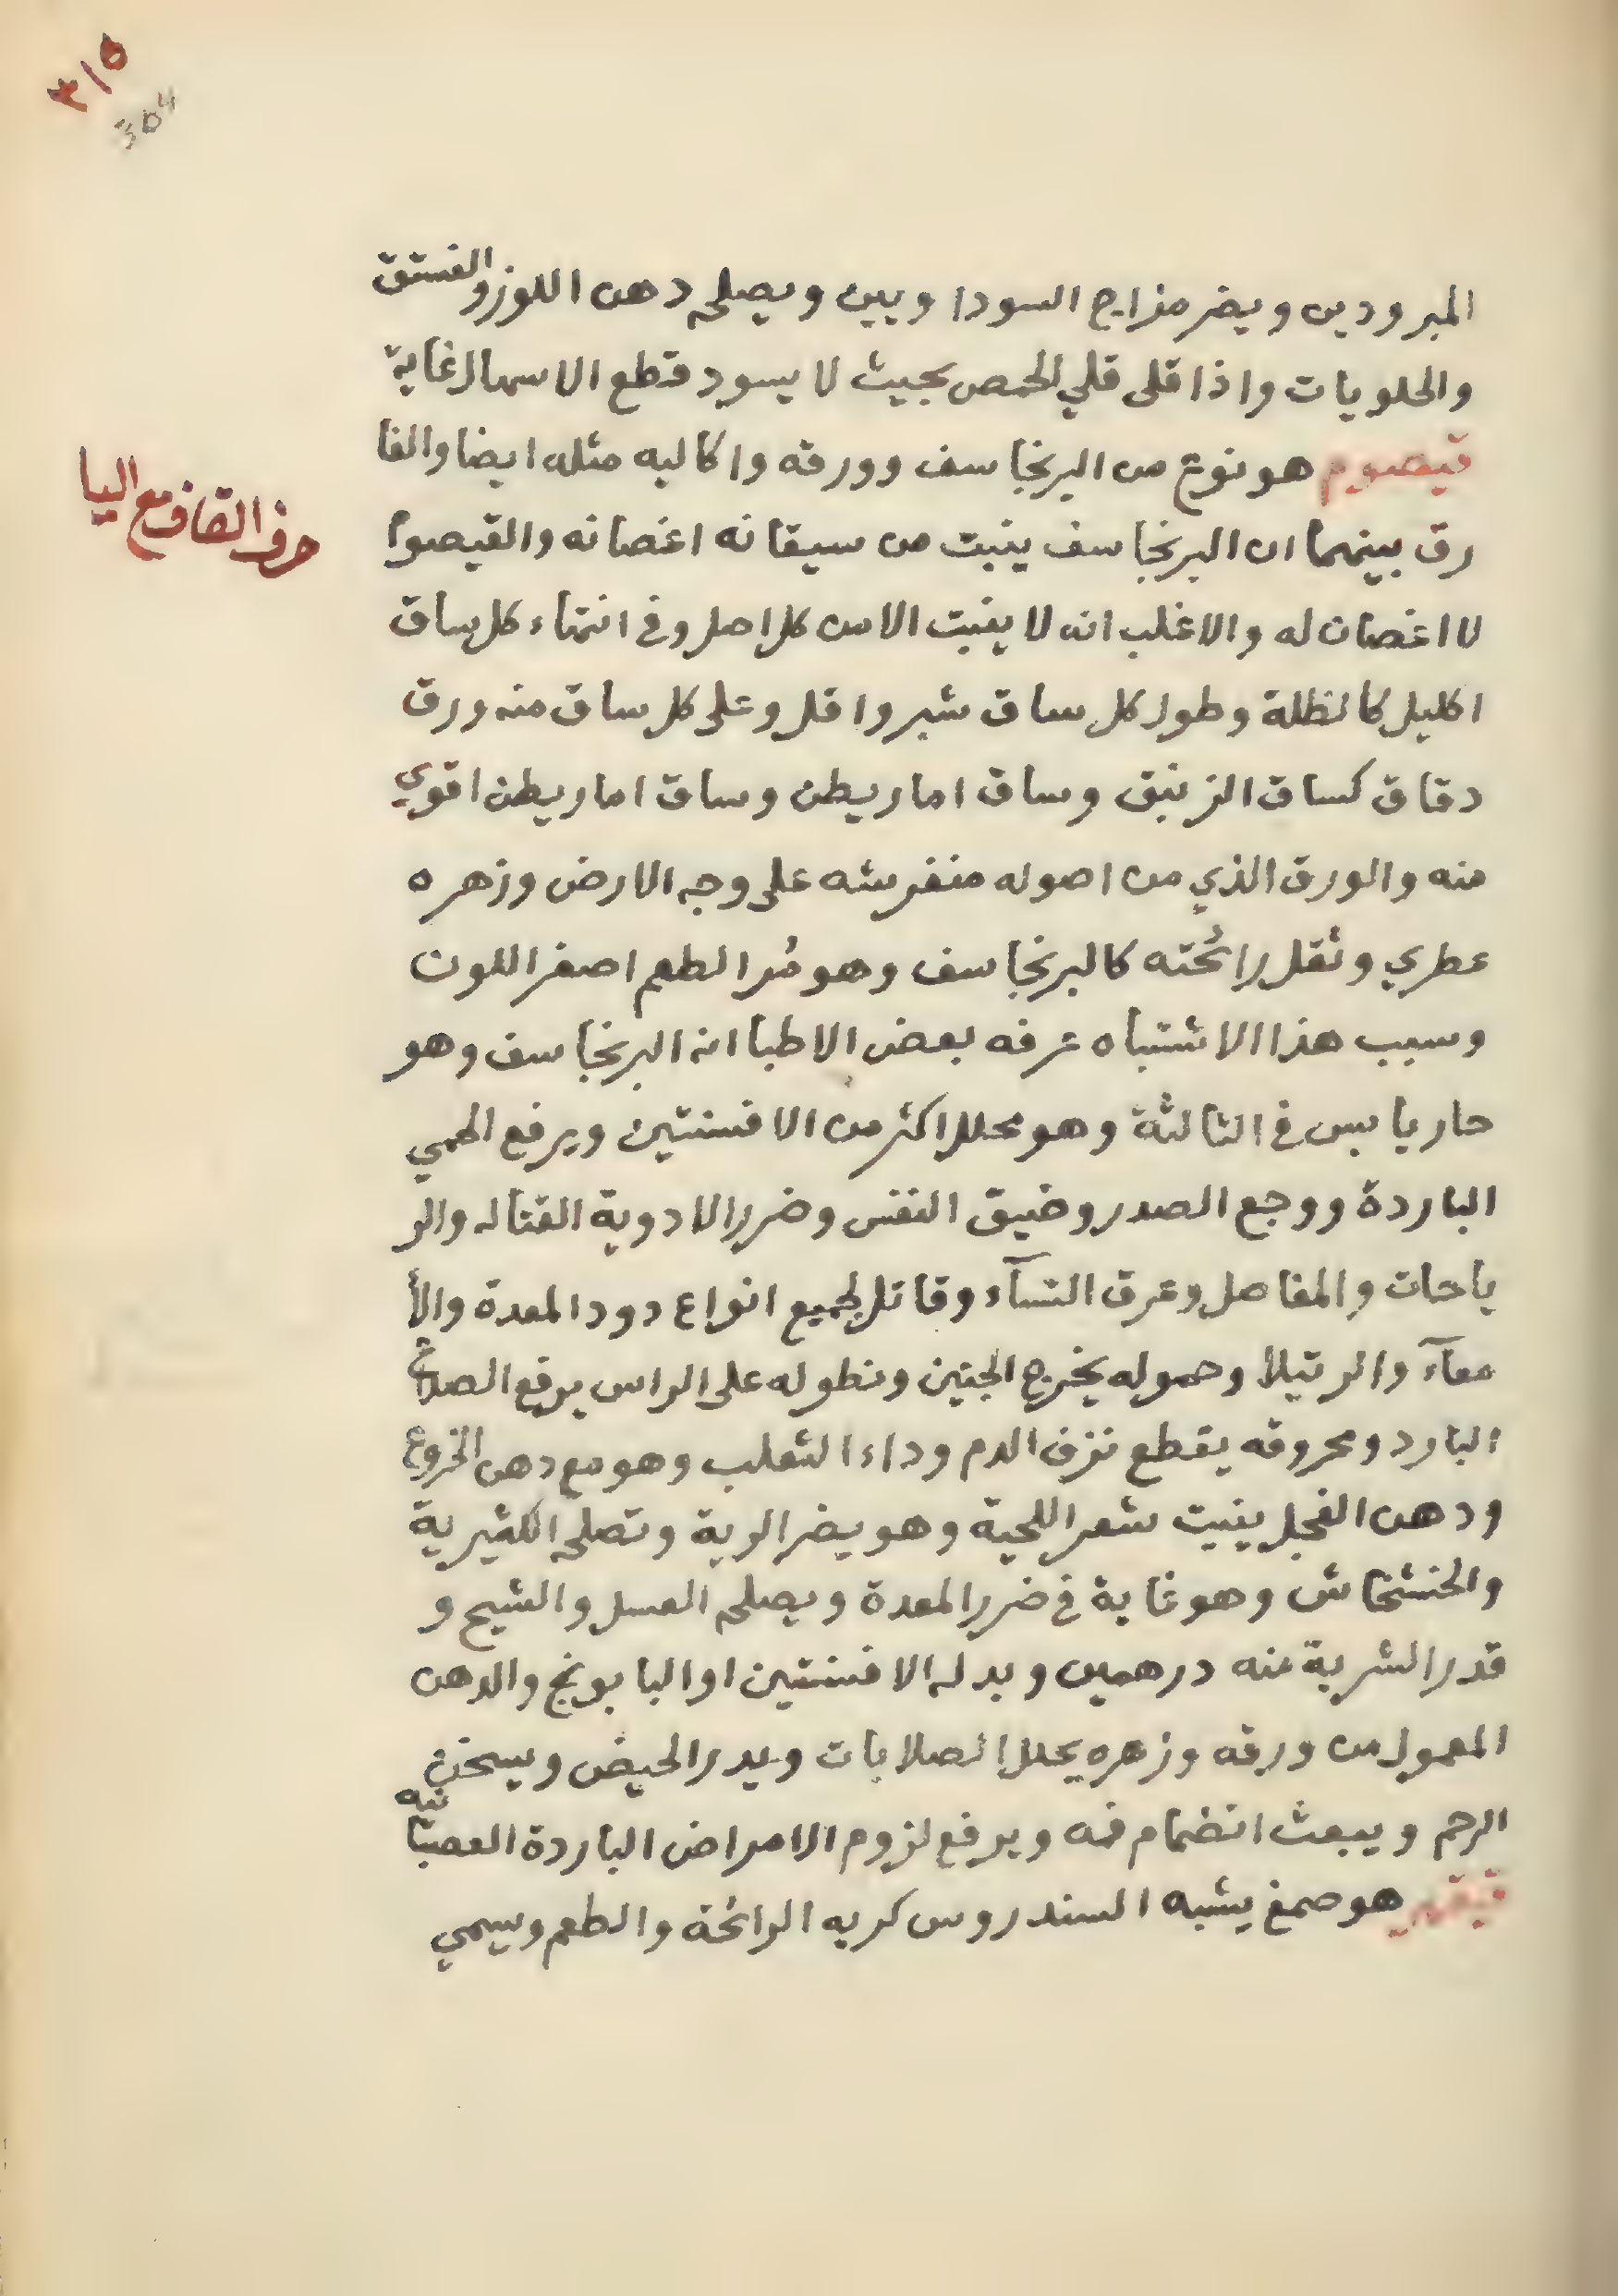 ٣١٥
304
المبرودين ويضر مزاج السوداويين ويصلحه دهن اللوز والفستق
والحلويات واذا قلى قلي الحمص بحيث لا يسود قطع الاسهال غاية
حرف القاف مع اليا
قيصوم هو نوع من البرنجاسف وورقه واكاليه مثله ايضا والفا
رق بينهما ان البرنجاسف ينبت من سيقانه اغصانه والقيصوم
لا اغصان له والاغلب انه لا ينبت الا من كل اصل وفي انتهاء كل ساق
اكليل كالظلة وطول كل ساق شبر واقل وعلى كل ساق منه ورق
دقاق كساق الزنبق وساق اماريطن وساق اماريطن اقوي
منه والورق الذي من اصوله منفرشه على وجه الارض وزهره
عطري وثقل رائحته كالبرنجاسف وهو مُر الطعم اصفر اللون
وسبب هذا الاشتباه عرفه بعض الاطبا انه البرنجاسف وهو
حار يابس في الثالثة وهو محلل اكثر من الافسنتين ويرفع الحمي
الباردة ووجع الصدر وضيق النفس وضرر الادوية القتاله والر
ياحات والمفاصل وعرق النسآء وقاتل لجميع انواع دود المعدة والأ
معآء والرتيلا وحموله يخرج الجنين ونطوله على الراس يرفع الصداع
البارد ومحروقه يقطع نزف الدم وداء الثعلب وهو مع دهن الخروع
ودهن الفجل ينبت شعر اللحية وهو يضر الرية وتصلحه الكثيرية
والخشخاش وهو غاية في ضرر المعدة ويصلحه العسل والشيح و
قدر الشربة منه درهمين وبدله الافسنتين او البابونج والدهن
المعمول من ورقه وزهره يحلل الصلابات ويدر الحيض ويسخن
الرحم ويبعث انضمام فمه ويرفع لزوم الامراض الباردة العصبانيه
قيقهر هو صمغ يشبه السندروس كريه الرائحة والطعم ويسمي